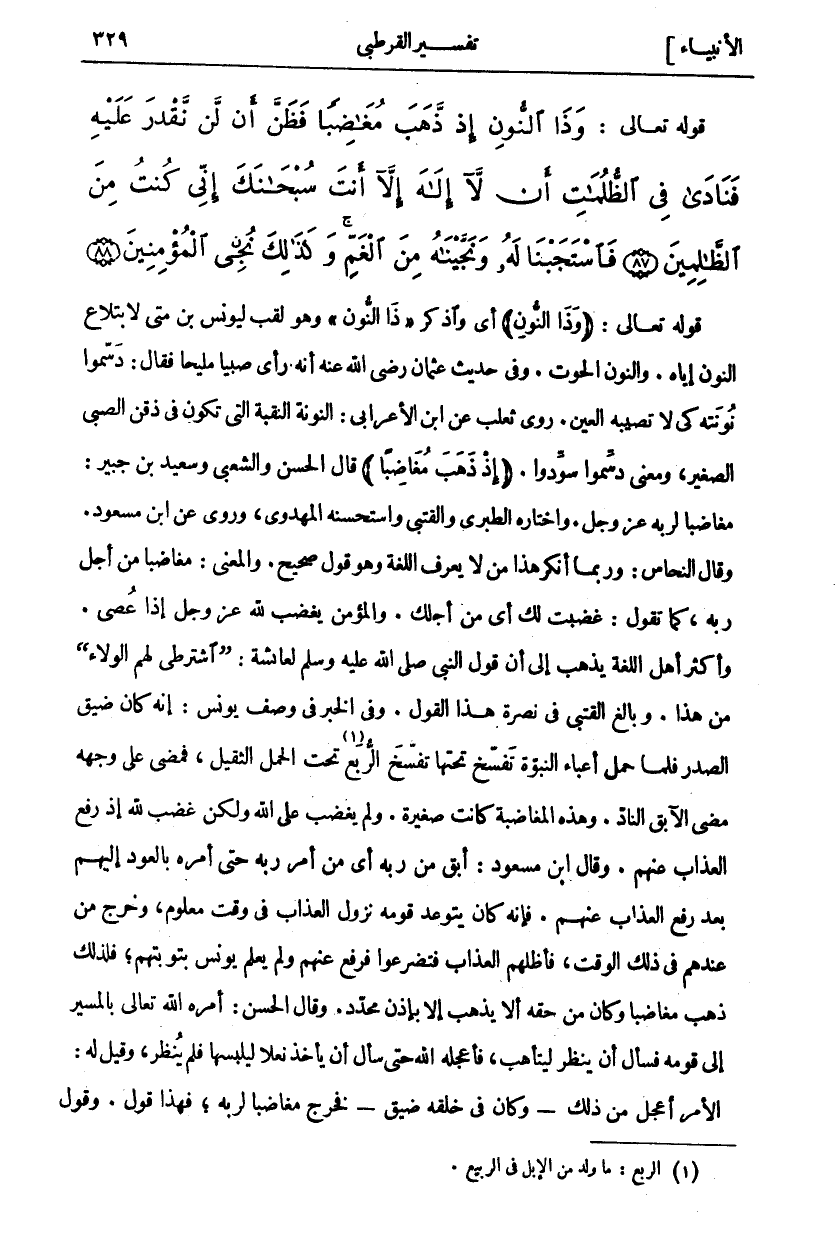 الأنبياء ] تفسير القرطبى ٣٢٩
قوله تعالى : وَذَا ٱلنُّونِ إِذ ذَّهَبَ مُغَـٰضِبًا فَظَنَّ أَن لَّن نَّقْدِرَ عَلَيْهِ
فَنَادَىٰ فِى ٱلظُّلُمَـٰتِ أَن لَّآ إِلَـٰهَ إِلَّآ أَنتَ سُبْحَـٰنَكَ إِنِّى كُنتُ مِنَ
ٱلظَّـٰلِمِينَ ﴿٨٧﴾ فَٱسْتَجَبْنَا لَهُۥ وَنَجَّيْنَـٰهُ مِنَ ٱلْغَمِّ ۚ وَكَذَٰلِكَ نُـۨجِى ٱلْمُؤْمِنِينَ ﴿٨٨﴾
قوله تعالى : ﴿وَذَا النُّونِ﴾ أى وآذكر « ذَا النُّون » وهو لقب ليونس بن متى لابتلاع
النون إياه . والنون الحوت . وفى حديث عثمان رضى الله عنه أنه رأى صبيا مليحا فقال : دَسّموا
نُونَته كى لا تصيبه العين . روى ثعلب عن ابن الأعرابى : النونة النقبة التى تكون فى ذقن الصبى
الصغير، ومعنى دسّموا سوّدوا . ﴿إِذْ ذَهَبَ مُغَاضِبًا﴾ قال الحسن والشعبى وسعيد بن جبير :
مغاضبا لربه عز وجل . واختاره الطبرى والقتبى واستحسنه المهدوى، وروى عن ابن مسعود .
وقال النحاس : وربمـا أنكر هذا من لا يعرف اللغة وهو قول صحيح . والمعنى : مغاضبا من أجل
ربه ، كما تقول : غضبت لك أى من أجلك . والمؤمن يغضب لله عز وجل إذا عُصى .
وأكثر أهل اللغة يذهب إلى أن قول النبى صلى الله عليه وسلم لعائشة : ”آشترطى لهم الولاء“
من هذا . وبالغ القتبى فى نصرة هـذا القول . وفى الخبر فى وصف يونس : إنه كان ضيق
الصدر فلمـا حمل أعباء النبوّة تَفَسَّخ تحتها تفسّخَ الُّرَبَع (١) تحت الحمل الثقيل ، فمضى على وجهه
مضى الآبق النادّ . وهذه المغاضبة كانت صغيرة . ولم يغضب على الله ولكن غضب لله إذ رفع
العذاب عنهم . وقال ابن مسعود : أبق من ربه أى من أمر ربه حتى أمره بالعود إليهـم
بعد رفع العذاب عنهـم . فإنه كان يتوعد قومه نزول العذاب فى وقت معلوم، وخرج من
عندهم فى ذلك الوقت، فأظلهم العذاب فتضرعوا فرفع عنهم ولم يعلم يونس بتوبتهم؛ فلذلك
ذهب مغاضبا وكان من حقه ألا يذهب إلا بإذن محدّد . وقال الحسن : أمره الله تعالى بالمسير
إلى قومه فسأل أن ينظر ليتأهب، فأعجله الله حتى سأل أن يأخذ نعلا ليلبسها فلم يُنظَر، وقيل له :
الأمر أعجل من ذلك – وكان فى خلقه ضيق – فخرج مغاضبا لربه ؛ فهذا قول . وقول
(١) الربع : ما ولد من الإبل فى الربيع .